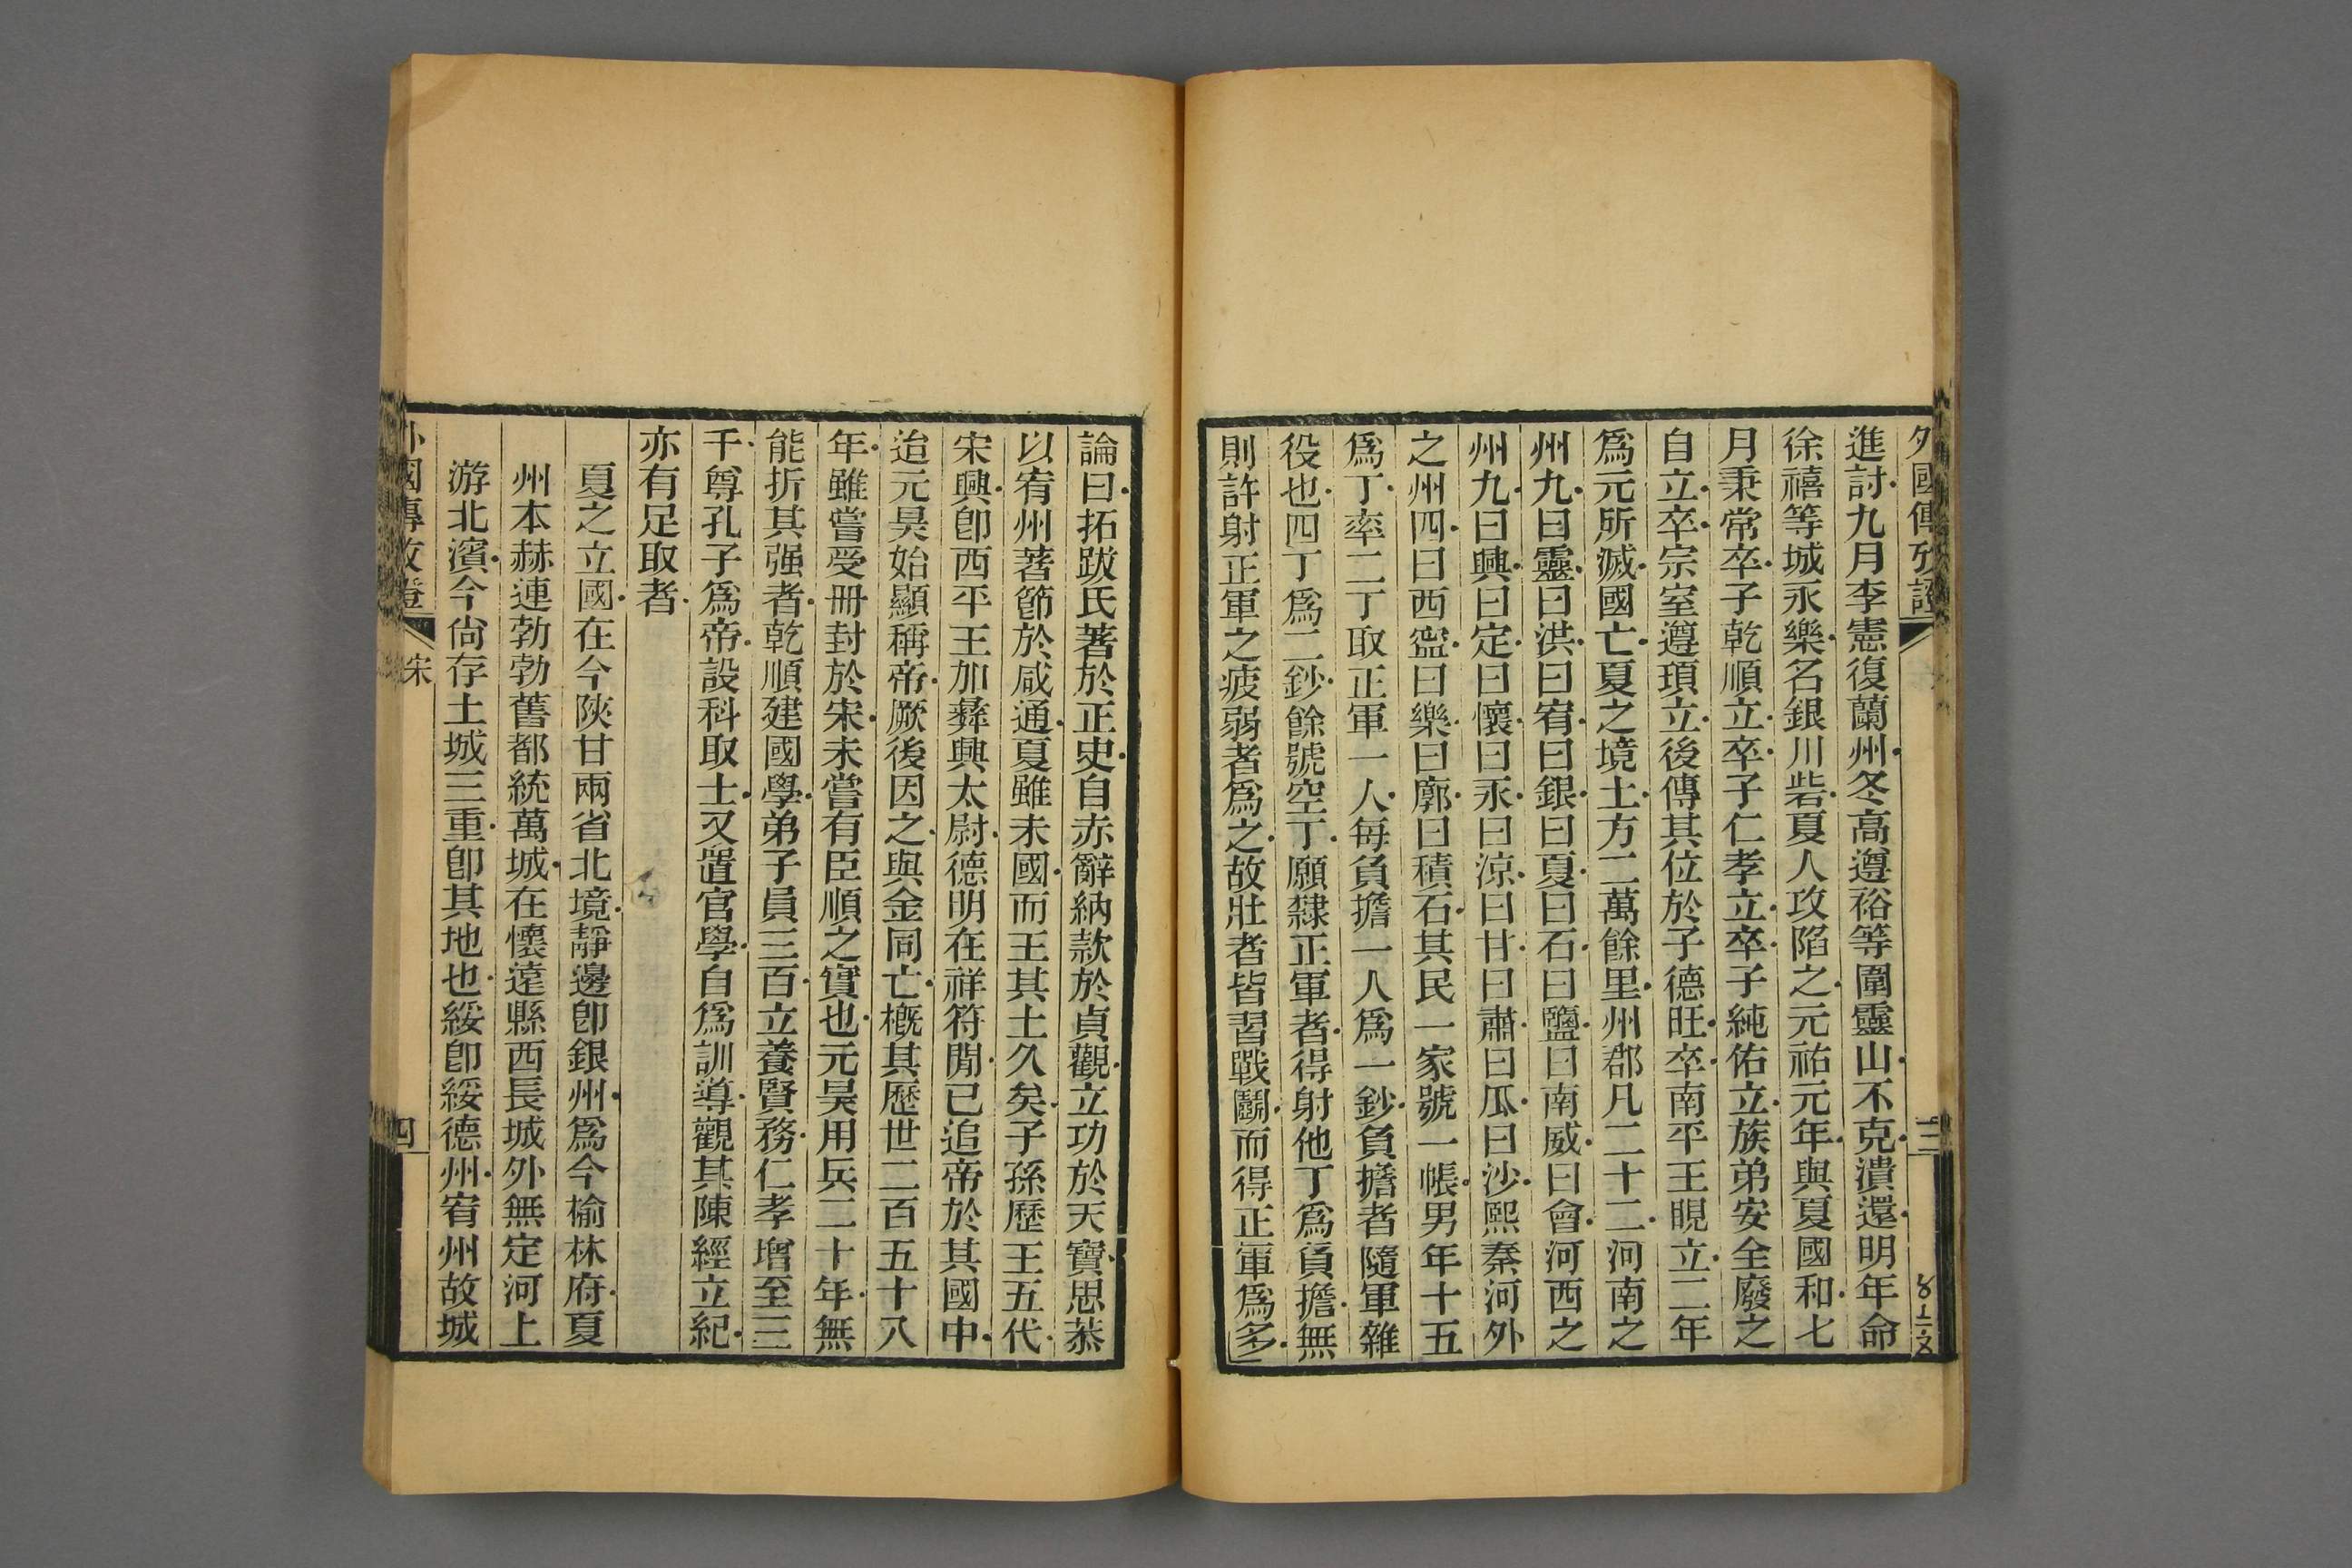 外國傳攷證
三
進討九月李憲復蘭州冬高遵裕等圍靈山不克潰還明年命
徐禧等城永樂名銀川砦夏人攻陷之元祐元年與夏國和七
月秉常卒子乾順立卒子仁孝立卒子純佑立族弟安全廢之
自立卒宗室遵頊立後傳其位於子德旺卒南平王睍立二年
爲元所滅國亡夏之境土方二萬餘里州郡凡二十二河南之
州九曰靈曰洪曰宥曰銀曰夏曰石曰鹽曰南威曰會河西之
州九曰興曰定曰懷曰永曰涼曰甘曰肅曰瓜曰沙熙秦河外
之州四曰西寧曰樂曰廓曰積石其民一家號一帳男年十五
爲丁率二丁取正軍一人每負擔一人爲一鈔負擔者隨軍雜
役也四丁爲二鈔餘號空丁願隸正軍者得射他丁爲負擔無
則許射正軍之疲弱者爲之故壯者皆習戰鬭而得正軍爲多
論曰拓跋氏著於正史自赤辭納款於貞觀立功於天寶思恭
以宥州著節於咸通夏雖未國而王其土久矣子孫歷王五代
宋興卽西平王加彝興太尉德明在祥符閒已追帝於其國中
迨元昊始顯稱帝厥後因之與金同亡槪其歷世二百五十八
年雖嘗受冊封於宋未嘗有臣順之實也元昊用兵二十年無
能折其强者乾順建國學弟子員三百立養賢務仁孝增至三
千尊孔子爲帝設科取士又置官學自爲訓導觀其陳經立紀
亦有足取者
夏之立國在今陝甘兩省北境靜邊卽銀州爲今榆林府夏
州本赫連勃勃舊都統萬城在懷遠縣西長城外無定河上
游北濱今尙存土城三重卽其地也綏卽綏德州宥州故城
外國傳攷證
宋
四